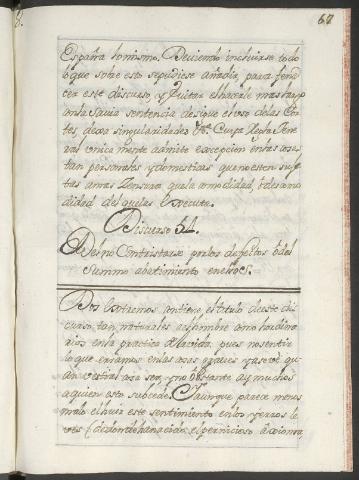 67
España lo mismo. Deviendo incluirse todo
lo que sobre esto se pudiese añadir, para fene
cer este discurso, y quitar el hacerle mas largo
con la savia sentencia de
tes, de sus singularidades Cuya Regla Gene
ral unica mente admite excepcion en las cosas
tan personales y domesticas que no esten suge
tas a mas Zensura que la comodidad, o desamo
didad del que las execute.
Discurso 51.
Del no Contristarse por los defectos o del
Summo abatimiento en ellos.
Dos Extremos contiene el titulo de este dis
curso, tan naturales al hombre como hordina
rios en la practica de la vida, pues no sentir
lo que erramos en las cosas graves ya se ve qu
an vestial cosa sea, y no obstante ay muchos
a quien esto subcede. Y aunque parece menos
malo el huir este sentimiento en los yerros le
ves (de donde ha nacido el pernicioso Axioma,